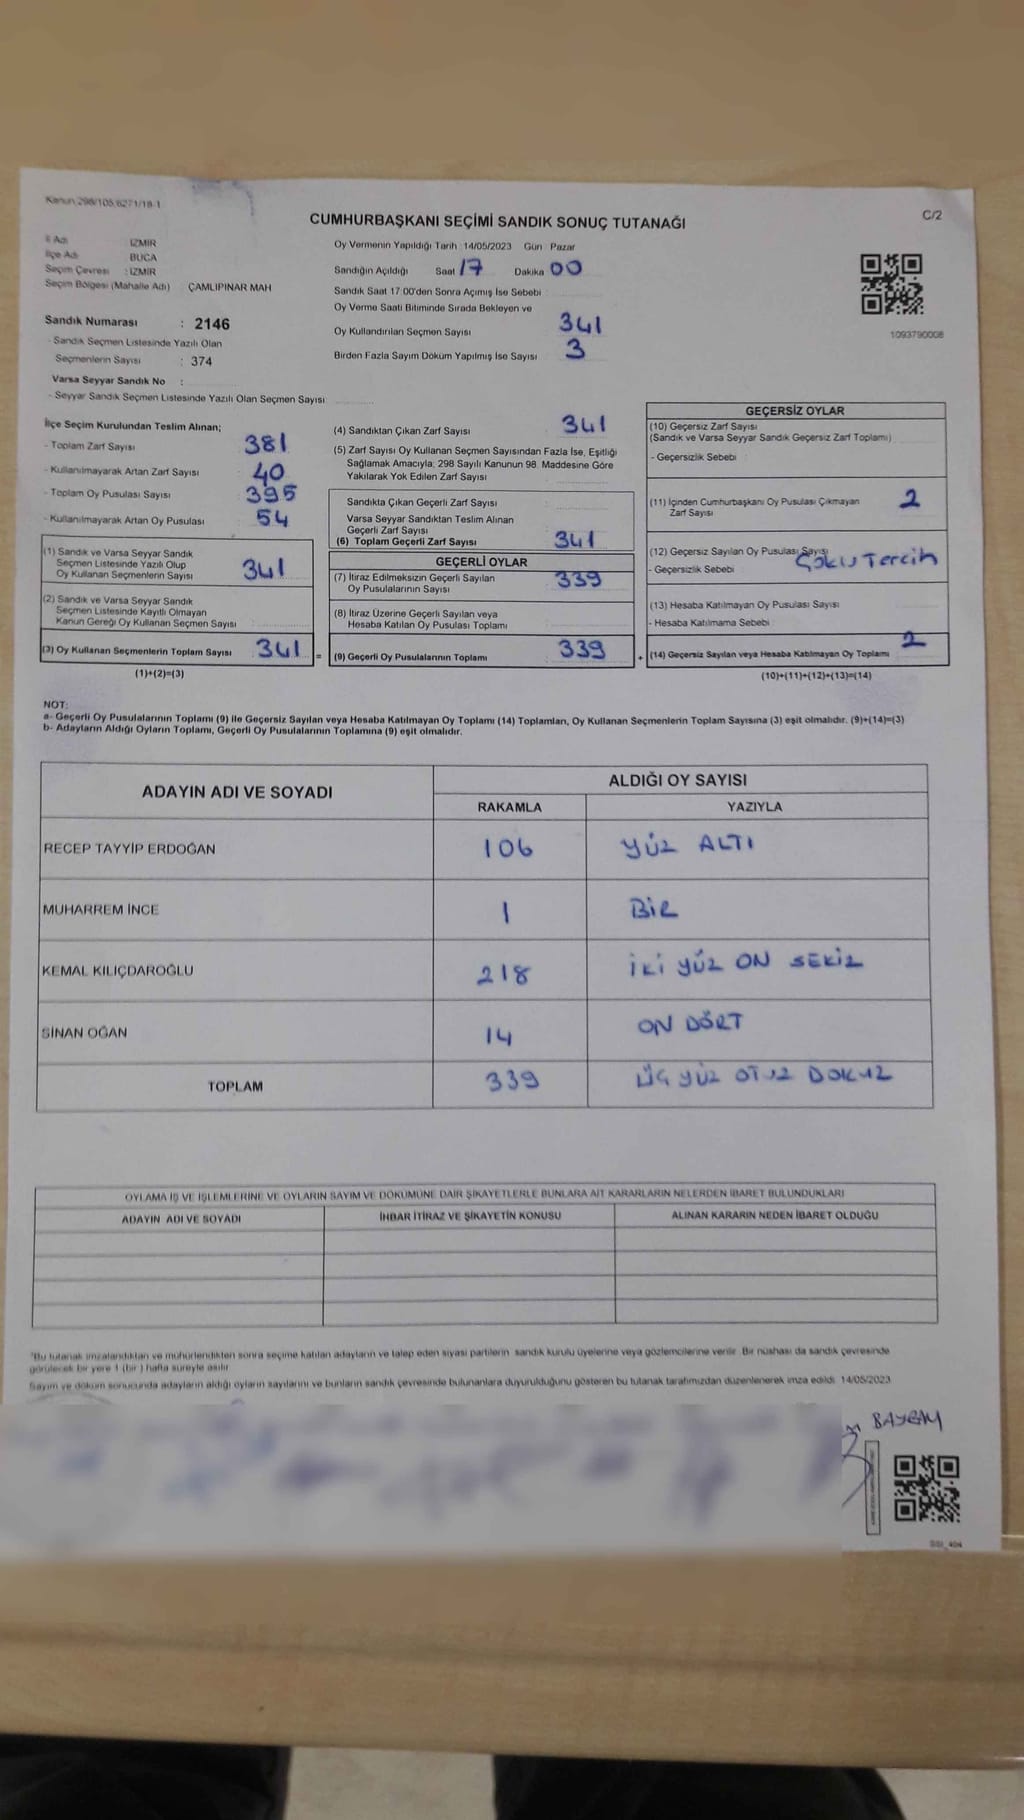 Kanun 298/105,6271/18-1
C/2
CUMHURBAŞKANI SEÇİMİ SANDIK SONUÇ TUTANAĞI
İl Adı İZMİR
İlçe Adı BUCA
Seçim Çevresi : İZMİR
Seçim Bölgesi (Mahalle Adı) ÇAMLIPINAR MAH
Sandık Numarası : 2146
- Sandık Seçmen Listesinde Yazılı Olan
Seçmenlerin Sayısı : 374
Varsa Seyyar Sandık No :
- Seyyar Sandık Seçmen Listesinde Yazılı Olan Seçmen Sayısı
Oy Vermenin Yapıldığı Tarih : 14/05/2023 Gün : Pazar
Sandığın Açıldığı Saat 17 Dakika 00
Sandık Saat 17:00'den Sonra Açımış İse Sebebi :
Oy Verme Saati Bitiminde Sırada Bekleyen ve
Oy Kullandırılan Seçmen Sayısı 341
Birden Fazla Sayım Döküm Yapılmış İse Sayısı 3
1093790008
İlçe Seçim Kurulundan Teslim Alınan;
- Toplam Zarf Sayısı 381
- Kullanılmayarak Artan Zarf Sayısı 40
- Toplam Oy Pusulası Sayısı 395
- Kullanılmayarak Artan Oy Pusulası 54
(1) Sandık ve Varsa Seyyar Sandık
Seçmen Listesinde Yazılı Olup
Oy Kullanan Seçmenlerin Sayısı 341
(2) Sandık ve Varsa Seyyar Sandık
Seçmen Listesinde Kayıtlı Olmayan
Kanun Gereği Oy Kullanan Seçmen Sayısı
(3) Oy Kullanan Seçmenlerin Toplam Sayısı 341 =
(1)+(2)=(3)
(4) Sandıktan Çıkan Zarf Sayısı 341
(5) Zarf Sayısı Oy Kullanan Seçmen Sayısından Fazla İse, Eşitliği
Sağlamak Amacıyla; 298 Sayılı Kanunun 98. Maddesine Göre
Yakılarak Yok Edilen Zarf Sayısı
Sandıkta Çıkan Geçerli Zarf Sayısı
Varsa Seyyar Sandıktan Teslim Alınan
Geçerli Zarf Sayısı
(6) Toplam Geçerli Zarf Sayısı 341
GEÇERLİ OYLAR
(7) İtiraz Edilmeksizin Geçerli Sayılan
Oy Pusulalarının Sayısı 339
(8) İtiraz Üzerine Geçerli Sayılan veya
Hesaba Katılan Oy Pusulası Toplamı
(9) Geçerli Oy Pusulalarının Toplamı 339 +
GEÇERSİZ OYLAR
(10) Geçersiz Zarf Sayısı
(Sandık ve Varsa Seyyar Sandık Geçersiz Zarf Toplamı)
- Geçersizlik Sebebi :
(11) İçinden Cumhurbaşkanı Oy Pusulası Çıkmayan
Zarf Sayısı 2
(12) Geçersiz Sayılan Oy Pusulası Sayısı
- Geçersizlik Sebebi Çoklu Tercih
(13) Hesaba Katılmayan Oy Pusulası Sayısı
- Hesaba Katılmama Sebebi :
(14) Geçersiz Sayılan veya Hesaba Katılmayan Oy Toplamı 2
(10)+(11)+(12)+(13)=(14)
NOT:
a- Geçerli Oy Pusulalarının Toplamı (9) ile Geçersiz Sayılan veya Hesaba Katılmayan Oy Toplamı (14) Toplamları, Oy Kullanan Seçmenlerin Toplam Sayısına (3) eşit olmalıdır. (9)+(14)=(3)
b- Adayların Aldığı Oyların Toplamı, Geçerli Oy Pusulalarının Toplamına (9) eşit olmalıdır.
ADAYIN ADI VE SOYADI ALDIĞI OY SAYISI
RAKAMLA YAZIYLA
RECEP TAYYİP ERDOĞAN 106 YÜZ ALTI
MUHARREM İNCE 1 BİR
KEMAL KILIÇDAROĞLU 218 İKİ YÜZ ON SEKİZ
SİNAN OĞAN 14 ON DÖRT
TOPLAM 339 ÜÇ YÜZ OTUZ DOKUZ
OYLAMA İŞ VE İŞLEMLERİNE VE OYLARIN SAYIM VE DÖKÜMÜNE DAİR ŞİKAYETLERLE BUNLARA AİT KARARLARIN NELERDEN İBARET BULUNDUKLARI
ADAYIN ADI VE SOYADI İHBAR İTİRAZ VE ŞİKAYETİN KONUSU ALINAN KARARIN NEDEN İBARET OLDUĞU
*Bu tutanak imzalandıktan ve mühürlendikten sonra seçime katılan adayların ve talep eden siyasi partilerin sandık kurulu üyelerine veya gözlemcilerine verilir. Bir nüshası da sandık çevresinde
görülecek bir yere 1 (bir ) hafta süreyle asılır.
Sayım ve döküm sonucunda adayların aldığı oyların sayılarını ve bunların sandık çevresinde bulunanlara duyurulduğunu gösteren bu tutanak tarafımızdan düzenlenerek imza edildi. 14/05/2023